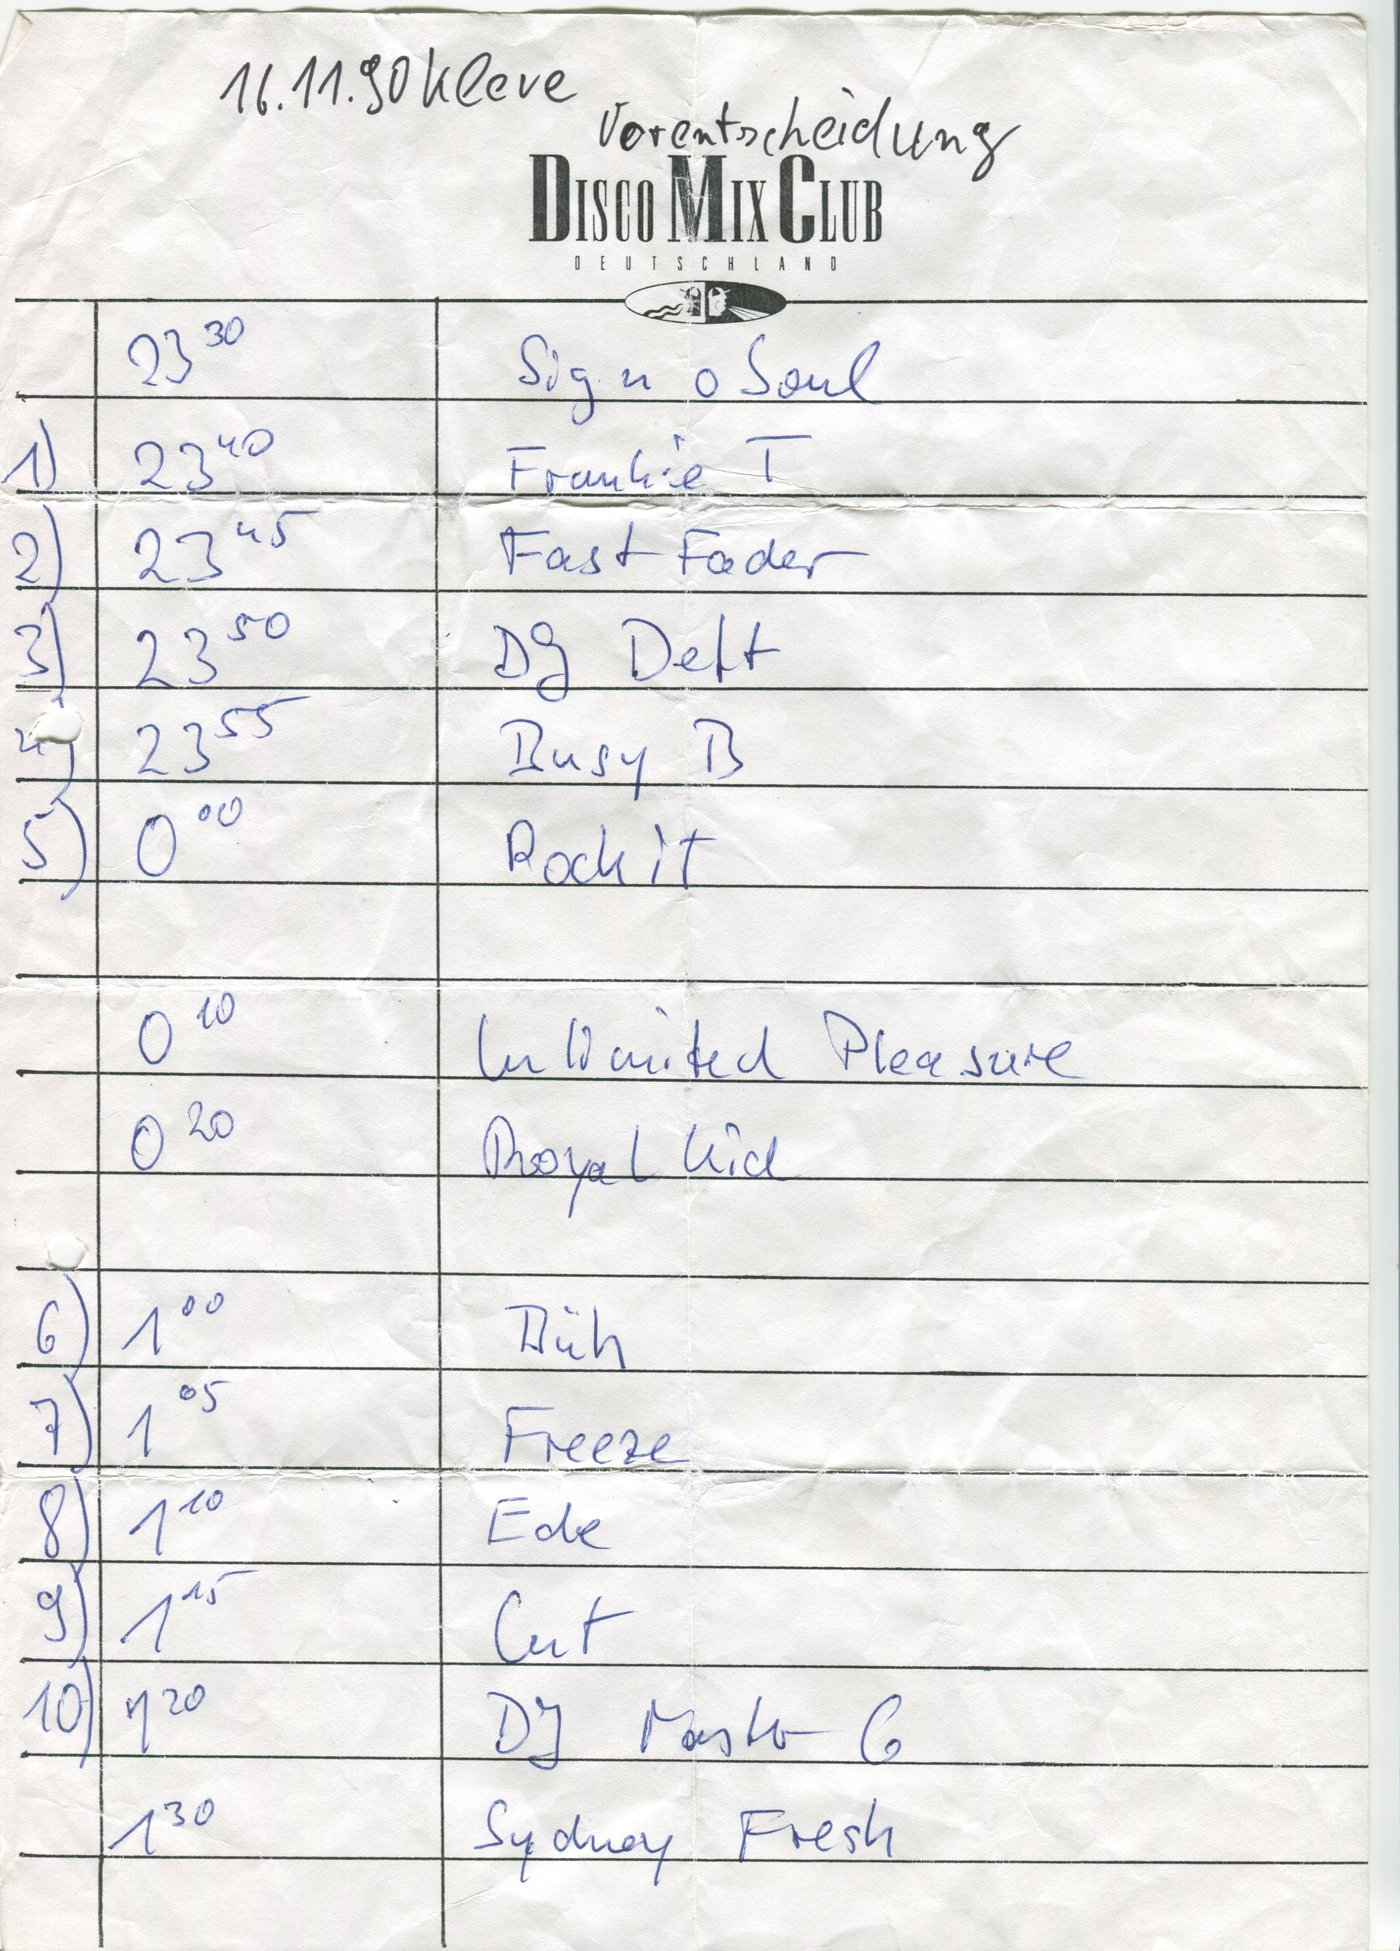 16.11.90 Kleve
Vorentscheidung
DISCO MIX CLUB
DEUTSCHLAND
23 30 Sign o Soul
1) 23 40 Frankie T
2) 23 45 Fast Fader
3) 23 50 DJ Deft
4) 23 55 Busy B
5) 0 00 Rock it
0 10 Unlimited Pleasure
0 20 Royal Kid
6) 1 00 Büh
7) 1 05 Freeze
8) 1 10 Ede
9) 1 15 Cut
10) 1 20 DJ Master G
1 30 Sydney Fresh